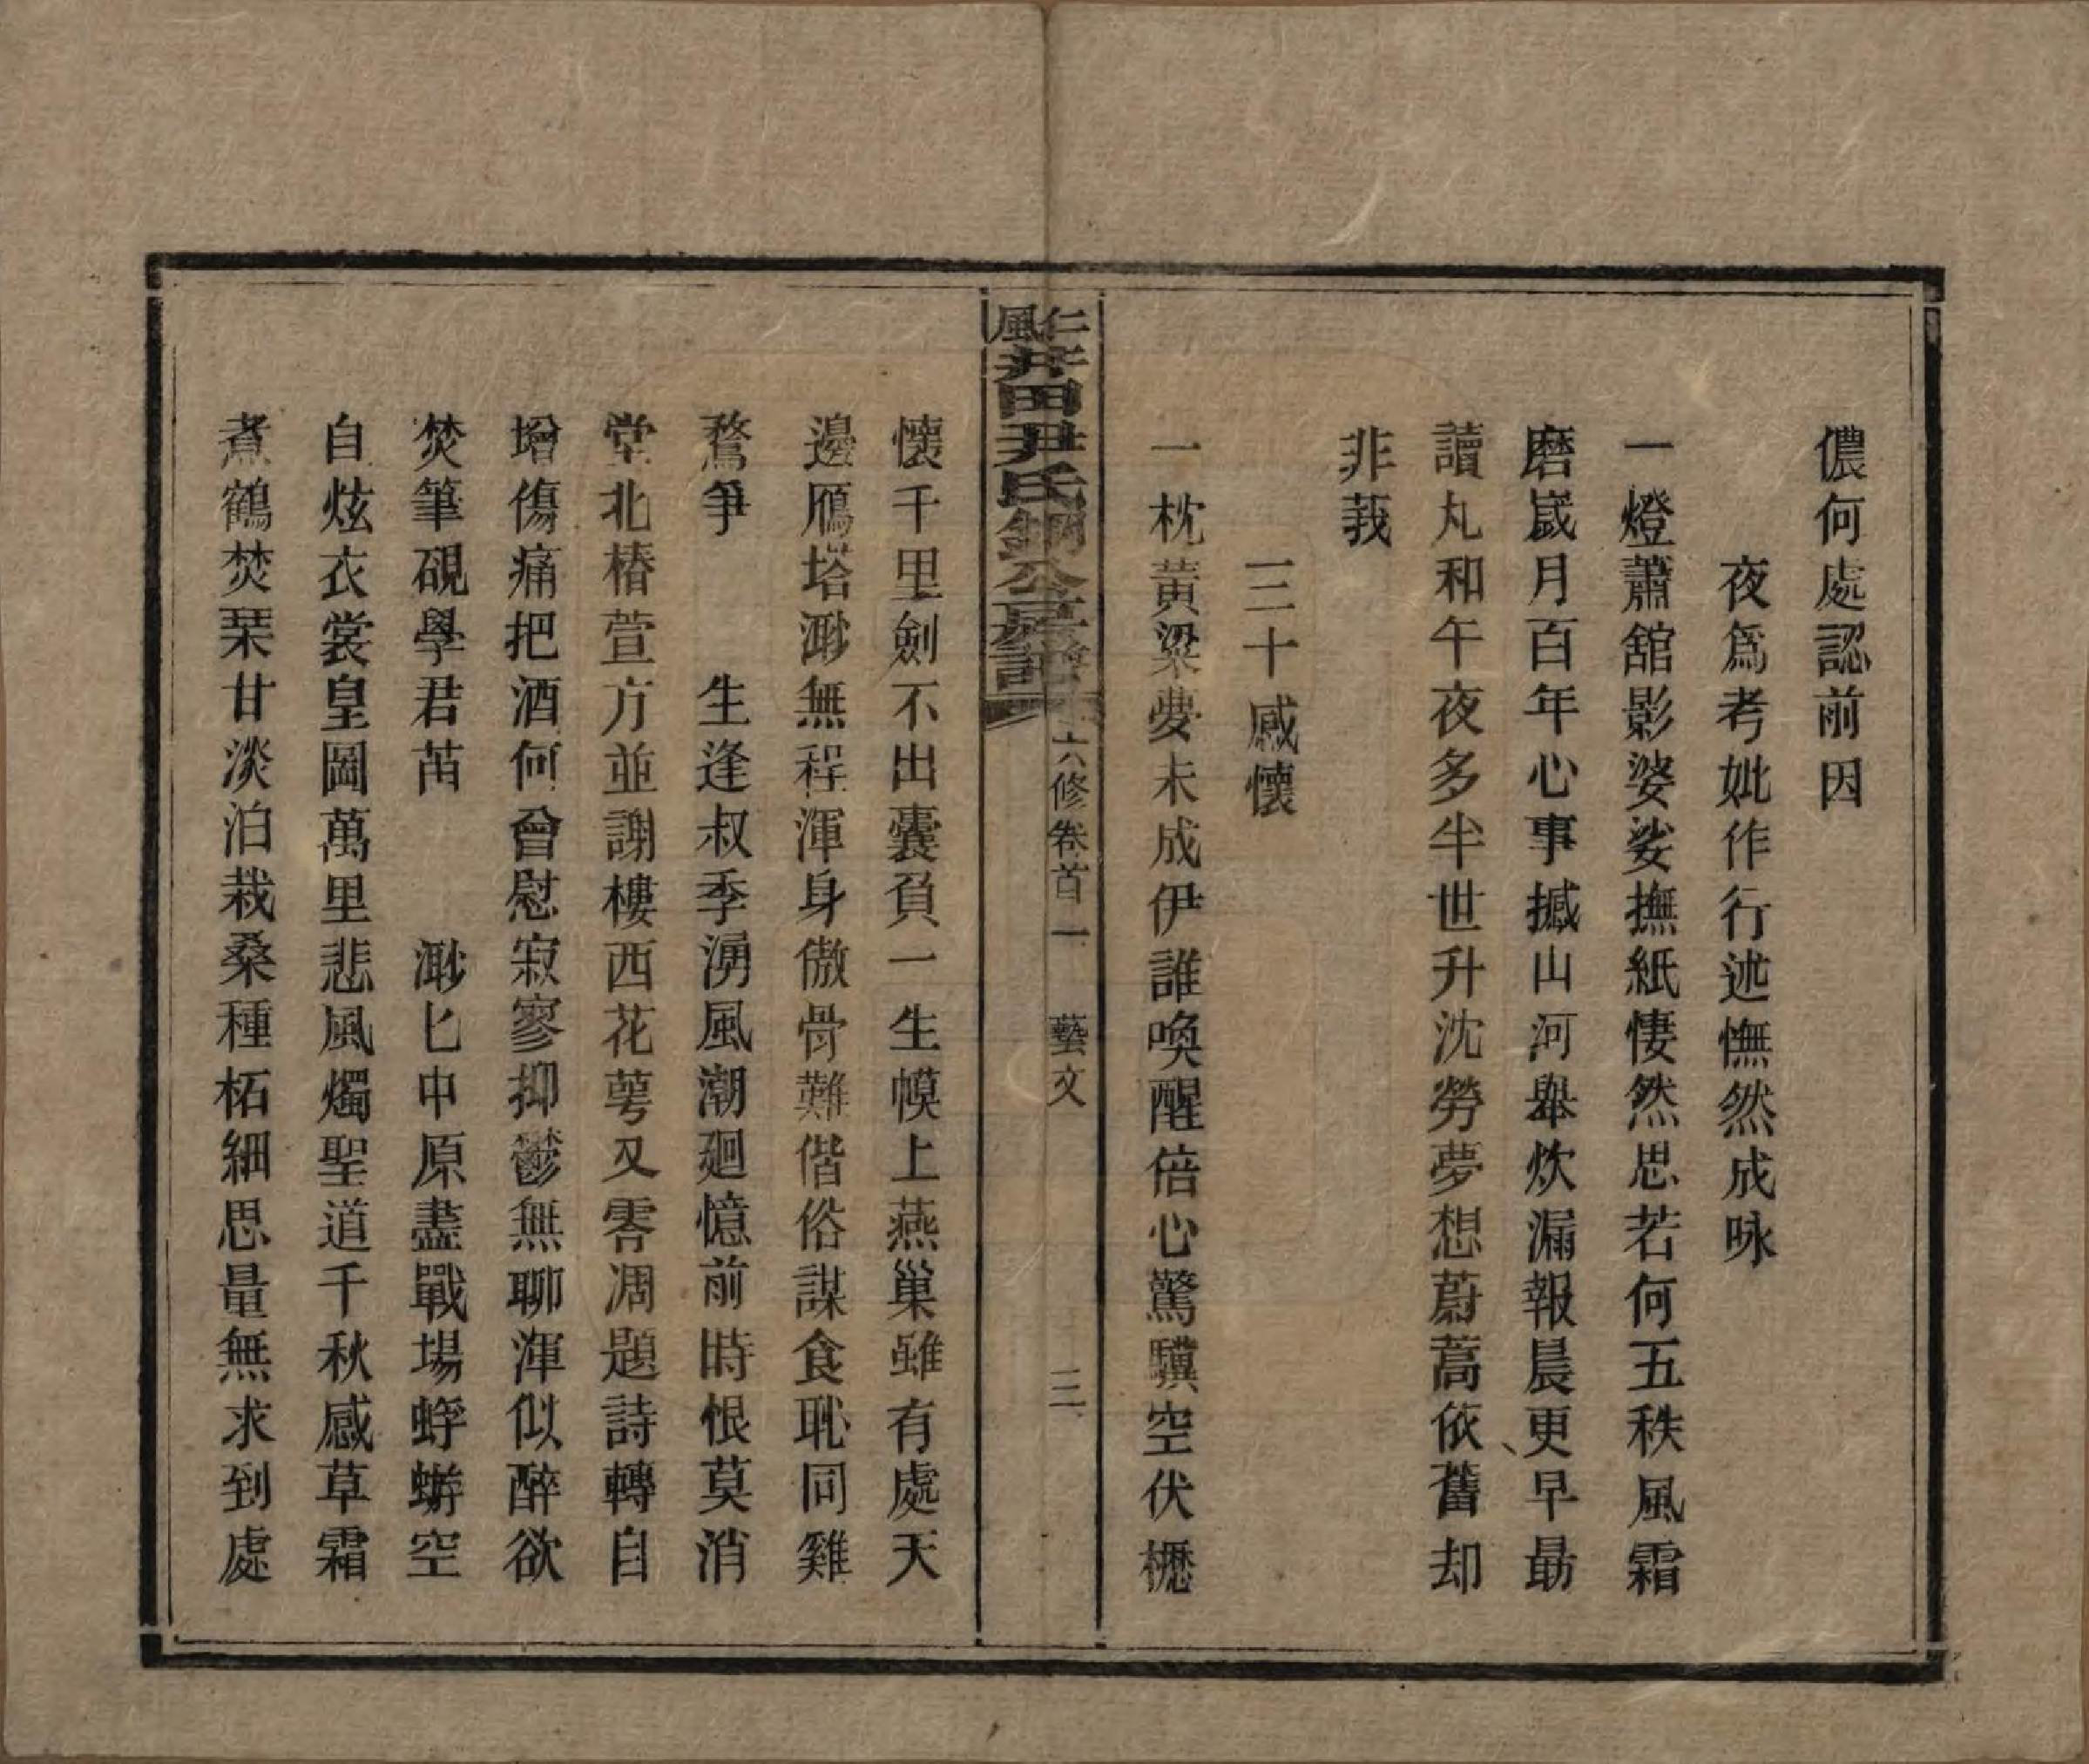 儂何處認前因
夜爲考妣作行述憮然成咏
一燈蕭舘影婆娑撫紙悽然思若何五秩風霜
磨嵗月百年心事撼山河舉炊漏報晨更早最
讀丸和午夜多半世升沈勞夢想蔚蒿依舊却
非莪
三十感懷
一枕黃粱夢未成伊誰喚醒倍心驚驥空伏櫪
仁風芹田尹氏錭公房譜 六修卷首一 藝文 三
懷千里劍不出囊負一生幙上燕巢雖有處天
邊雁塔渺無程渾身傲骨難偕俗謀食恥同雞
鶩爭 生逢叔季湧風潮廻憶前時恨莫消
堂北椿萱方並謝樓西花萼又零凋題詩轉自
增傷痛把酒何曾慰寂寥抑鬱無聊渾似醉欲
焚筆硯學君苗 渺匕中原盡戰場蜉蝣空
自炫衣裳皇圖萬里悲風燭聖道千秋感草霜
煮鶴焚琹甘淡泊栽桑種柘細思量無求到處